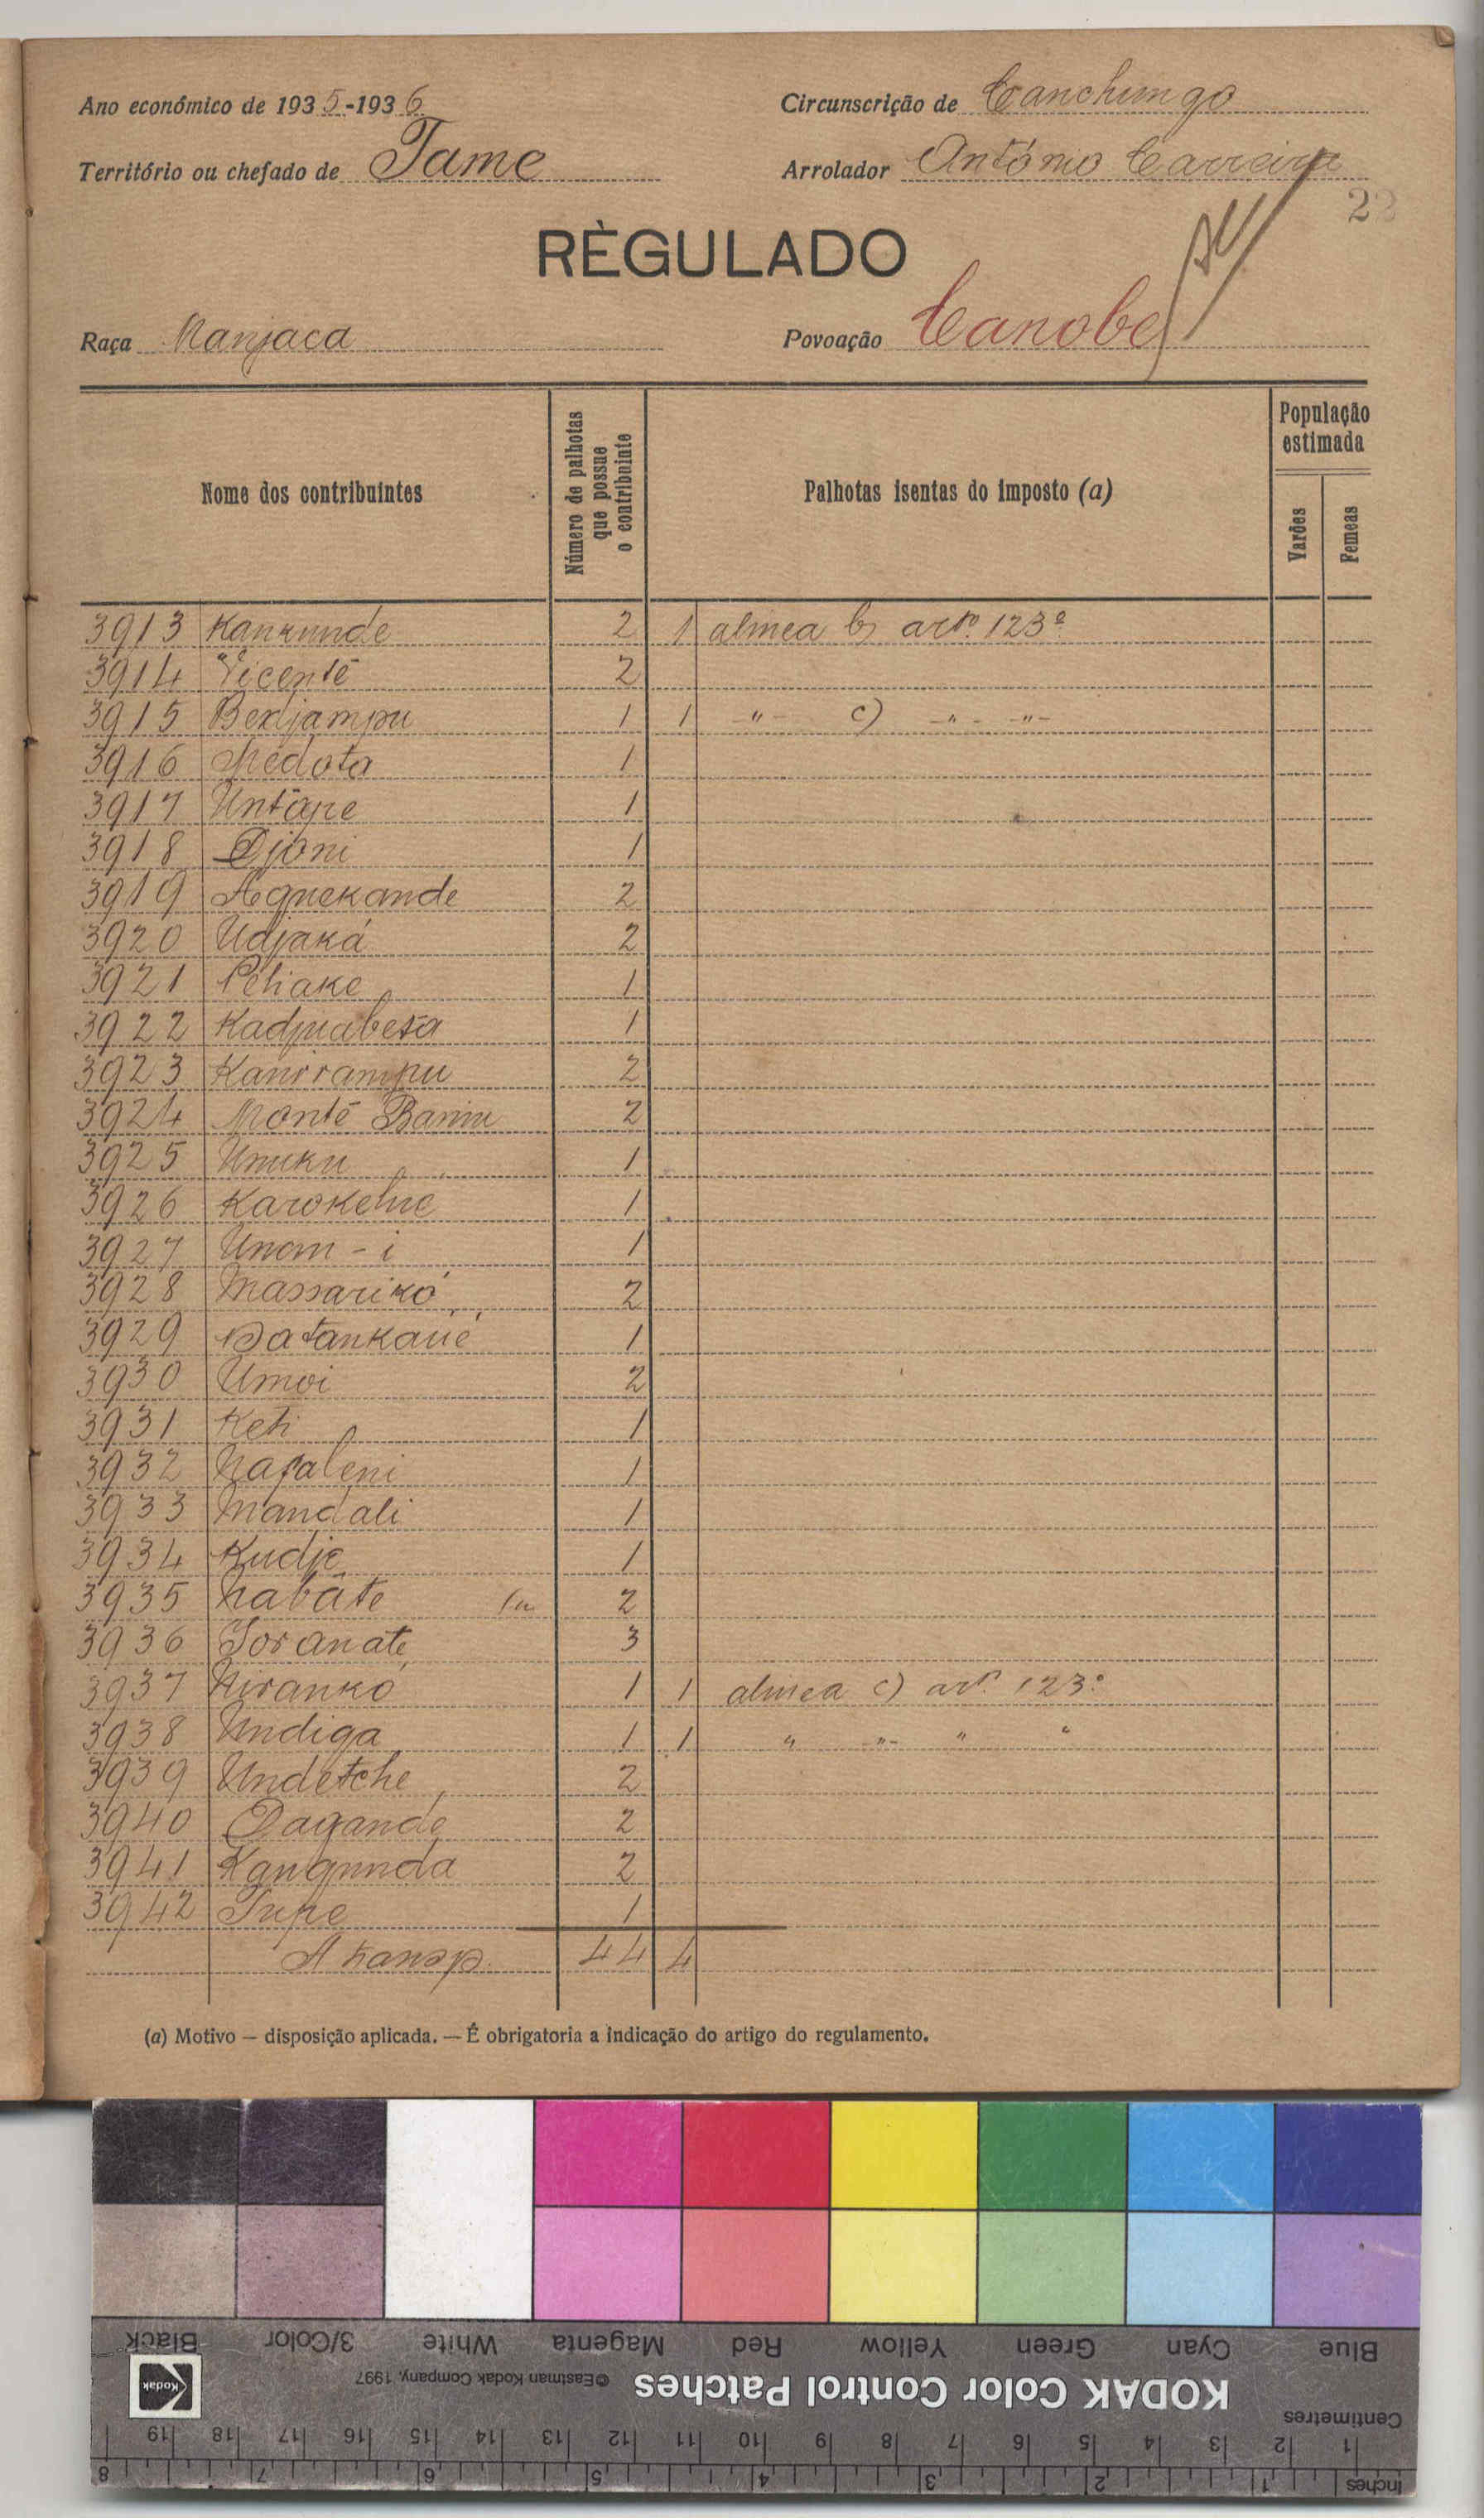 Ano económico de 1935-1936
Circunscrição de Canchungo
Território ou chefado de Tame
Arrolador António Carreira
22
RÈGULADO
Raça Manjaca
Povoação Canobe
Nome dos contribuintes
Número de palhotas que possue o contribuinte
Palhotas isentas do imposto (a)
População estimada
Varões
Femeas
3913 2 1 alinea b) artº. 123º
3914 Vicente 2
3915 Bedjampu 1 1 -"- c) -"- -"-
3916 Médota 1
3917 Untápe 1
3918 Djoni 1
3919 Agnekande 2
3920 Udjaká 2
3921 Petiake 1
3922 1
3923 2
3924 2
3925 Umuku 1
3926 1
3927 Unom-i 1
3928 Massarikó 2
3929 Batankaué 1
3930 Umoi 2
3931 Keti 1
3932 Nafaleni 1
3933 Mandali 1
3934 Kudje 1
3935 Nabáte 2
3936 3
3937 Niranko 1 1 alinea c) artº. 123º
3938 Undiga 1 1 " -"- " "
3939 Undetche 2
3940 Dagande 2
3941 2
3942 1
A transp. 44 4
(a) Motivo — disposição aplicada. — É obrigatoria a indicação do artigo do regulamento.
Black 3/Color White Magenta Red Yellow Green Cyan Blue
Kodak
©Eastman Kodak Company, 1997
KODAK Color Control Patches
Centimetres
1 2 3 4 5 6 7 8 9 10 11 12 13 14 15 16 17 18 19
Inches 1 2 3 4 5 6 7 8